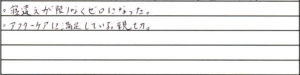 。寝違えが限りなくゼロになった。
。アフターケアに満足している親もカ。